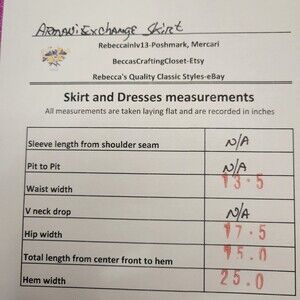 Armani Exchange Skirt
Rebeccainlv13-Poshmark, Mercari
BeccasCraftingCloset-Etsy
Rebecca's Quality Classic Styles-eBay
Skirt and Dresses measurements
All measurements are taken laying flat and are recorded in inches
Sleeve length from shoulder seam N/A
Pit to Pit N/A
Waist width 13.5
V neck drop N/A
Hip width 17.5
Total length from center front to hem 15.0
Hem width 25.0